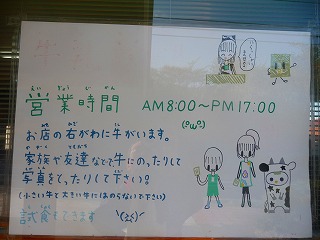 営業時間 AM8:00~PM17:00
えいぎょうじかん
(°ω°)
お店の右がわに牛がいます。
家族や友達などで牛にのったりして
写真をとったりして下さい。
(小さい牛と大きい牛にはのらないで下さい)
試食もできます